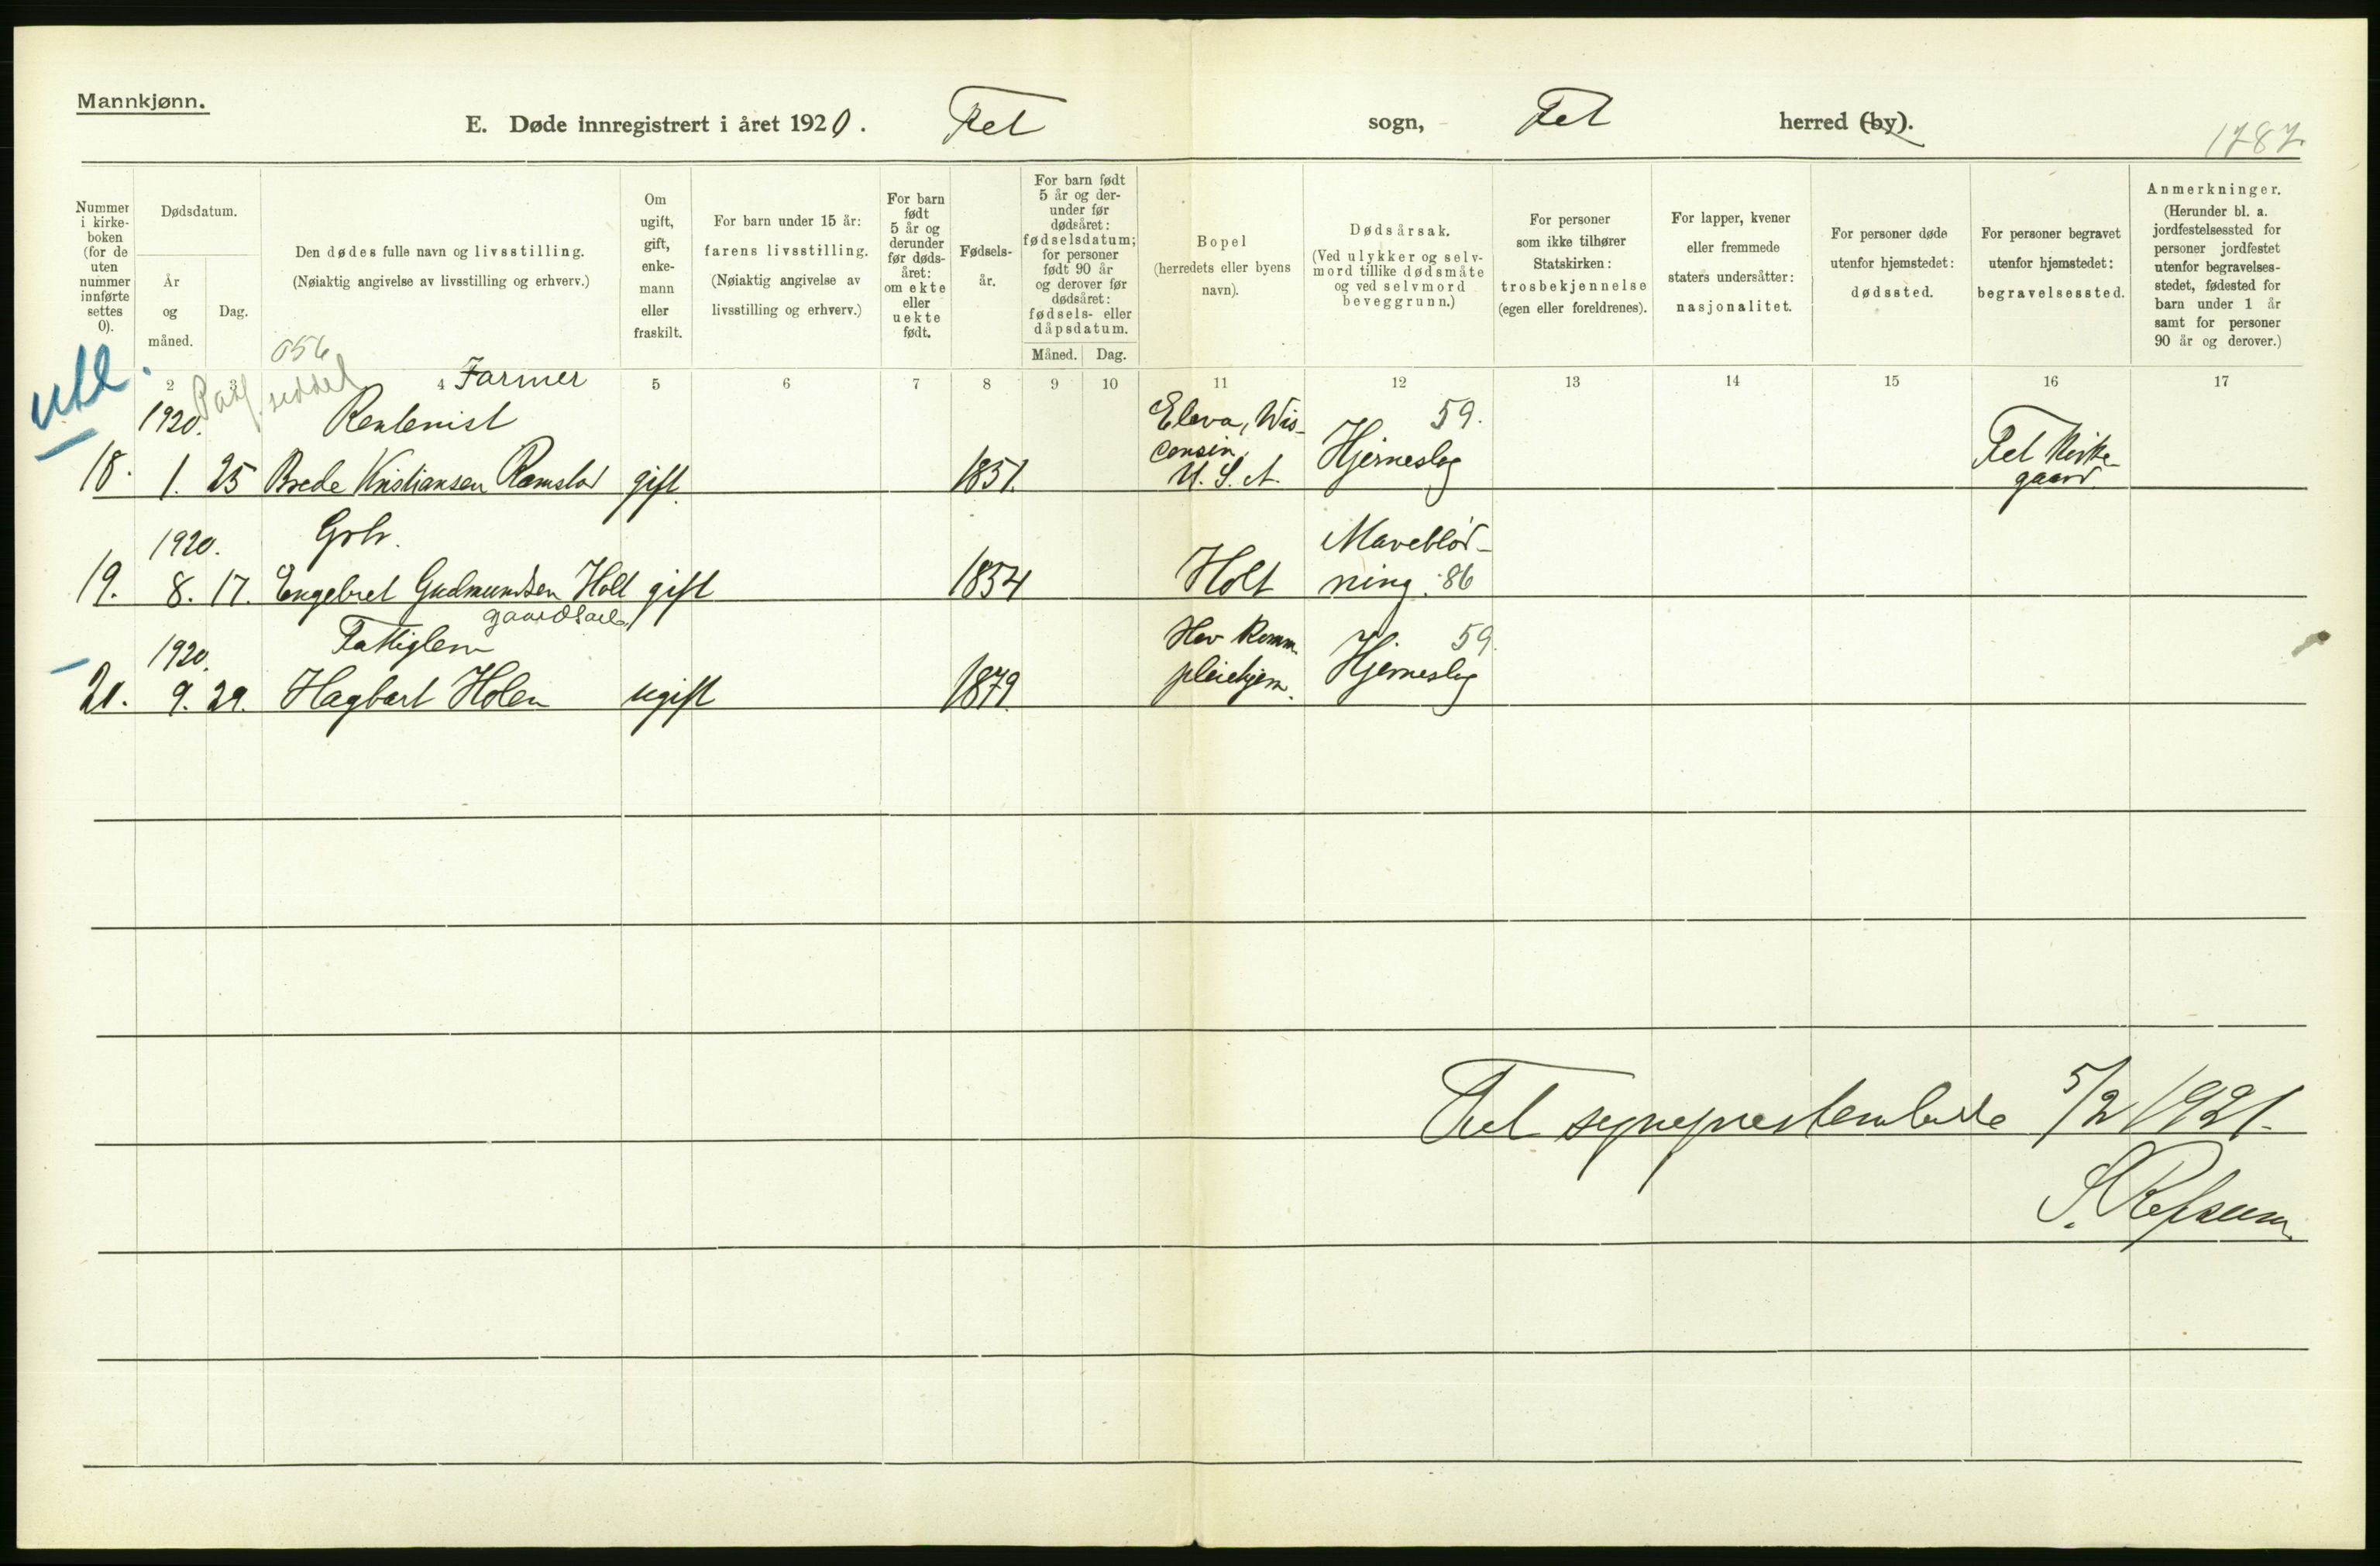 Mannkjønn.
E. Døde innregistrert i året 1920. Fet sogn, Fet herred (by).
1787
Nummer i kirke- boken (for de uten nummer innførte settes 0).
Dødsdatum.
År og måned.
Dag.
Den dødes fulle navn og livsstilling.
(Nøiaktig angivelse av livsstilling og erhverv.)
Om ugift, gift, enke- mann eller fraskilt.
For barn under 15 år:
farens livsstilling.
(Nøiaktig angivelse av
livsstilling og erhverv.)
For barn født 5 år og derunder før døds- året: om ekte eller uekte født.
Fødsels- år.
For barn født 5 år og der- under før dødsåret: fødselsdatum; for personer født 90 år og derover før dødsåret: fødsels- eller dåpsdatum.
Måned. Dag.
Bopel
(herredets eller byens
navn).
Dødsårsak.
(Ved ulykker og selv-
mord tillike dødsmåte
og ved selvmord
beveggrunn.)
For personer
som ikke tilhører
Statskirken:
trosbekjennelse
(egen eller foreldrenes).
For lapper, kvener
eller fremmede
staters undersåtter:
nasjonalitet.
For personer døde
utenfor hjemstedet:
dødssted.
For personer begravet
utenfor hjemstedet:
begravelsessted.
Anmerkninger.
(Herunder bl. a.
jordfestelsessted for
personer jordfestet
utenfor begravelses-
stedet, fødested for
barn under 1 år
samt for personer
90 år og derover.)
056
2 3 4 5 6 7 8 9 10 11 12 13 14 15 16 17
utl.
seddel
Farmer
1920. Rentenist Eleva, Wis- 59.
consin,
18. 1. 25 Brede Kristiansen Ramstad gift 1851. U. S. A. Hjerneslag Fet Kirke-
gaard.
1920. Grbr. Maveblød-
19. 8. 17. Engebret Gudmundsen Holt gift 1854 Holt ning. 86
1920. Fattiglem Hov Komm. 59.
21. 9. 29. Hagbart Holen ugift 1879. pleiehjem. Hjerneslag
Fet sogneprestembede 5/2 1921.
S. Refsum